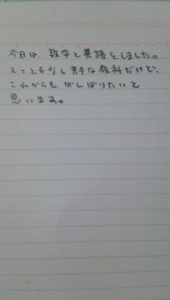 今日は、数学と英語をしました。
とっても少し苦手な教科だけど、
これからも がんばりたいと
思います。